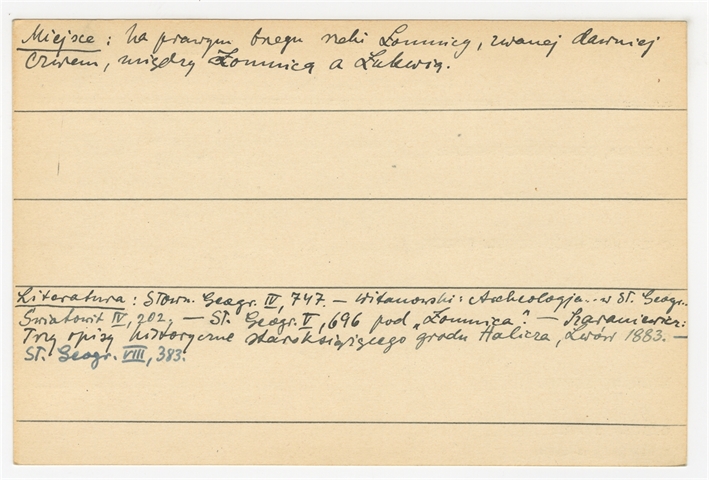 Miejsce: na prawym brzegu rzeki Łomnicy, zwanej dawniej
Czwem, między Łomnicą a Łukwią.
Literatura: Słown. Geogr. IV, 747 — Witanowski: Archeologja.. w Sł. Geogr..
Światowit IV, 202. — Sł. Geogr. V, 696 pod „Łomnica". — Szaraniewicz:
Trzy opisy historyczne staroksiążęcego grodu Halicza, Lwów 1883. —
Sł. Geogr. VIII, 383.